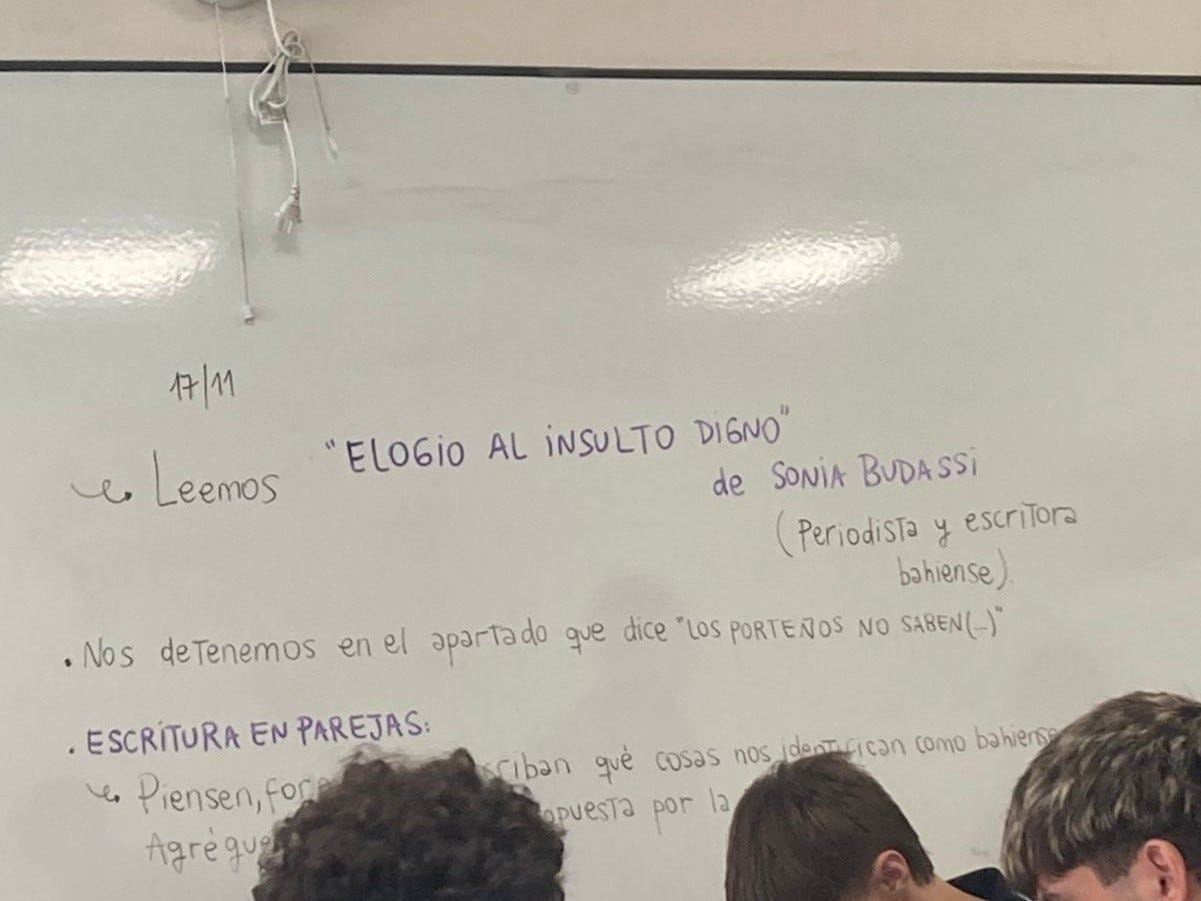 17/11
Leemos "ELOGIO AL INSULTO DIGNO"
de SONIA BUDASSI
(Periodista y escritora
bahiense).
. Nos detenemos en el apartado que dice "LOS PORTEÑOS NO SABEN(...)"
. ESCRITURA EN PAREJAS:
Piensen, qué cosas nos identifican como
por la